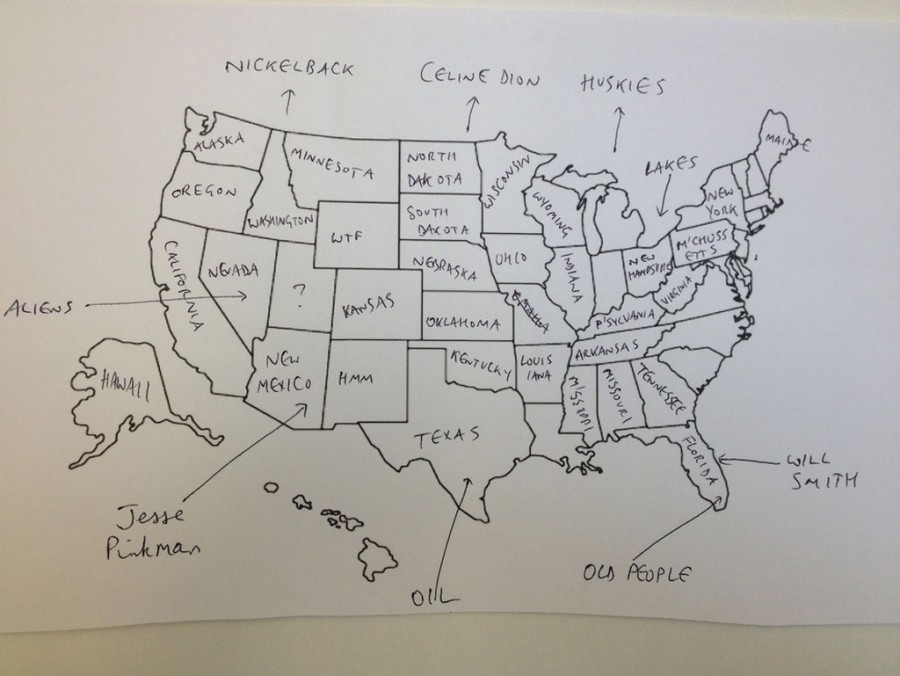 NICKELBACK
CELINE DION
HUSKIES
ALASKA
MINNESOTA
NORTH
DAKOTA
WISCONSIN
LAKES
MAINE
OREGON
WASHINGTON
WTF
SOUTH
DAKOTA
WYOMING
NEW
YORK
CALIFORNIA
NEVADA
?
NEBRASKA
OHIO
INDIANA
NEW
HAMPSHIRE
M'CHUSS
ETTS
ALIENS
KANSAS
OKLAHOMA
P'SYLVANIA
VIRGINIA
HAWAII
NEW
MEXICO
HMM
KENTUCKY
LOUIS
IANA
ARKANSAS
M'SSIPPI
MISSOURI
TENNESSEE
TEXAS
FLORIDA
WILL
SMITH
Jesse
Pinkman
OIL
OLD PEOPLE